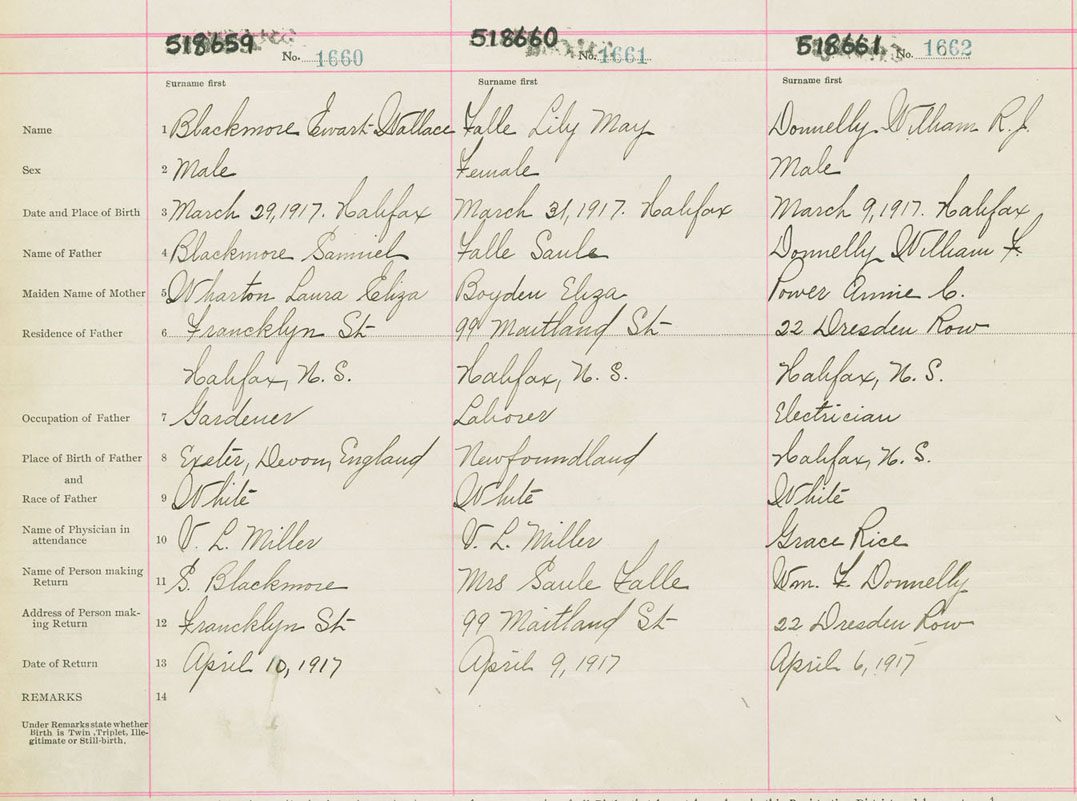 518659 518660 518661
No. 1660 No. 1661 No. 1662
Surname first Surname first Surname first
Name 1 Blackmore Ewart Wallace Falle Lily May Donnelly William R. J.
Sex 2 Male Female Male
Date and Place of Birth 3 March 29, 1917. Halifax March 31, 1917. Halifax March 9, 1917. Halifax
Name of Father 4 Blackmore Samuel Falle Saule Donnelly William F.
Maiden Name of Mother 5 Wharton Laura Eliza Boyden Eliza Power Annie C.
Residence of Father 6 Francklyn St 99 Maitland St 22 Dresden Row
Halifax, N. S. Halifax, N. S. Halifax, N. S.
Occupation of Father 7 Gardener Laborer Electrician
Place of Birth of Father 8 Exeter, Devon, England Newfoundland Halifax, N. S.
and
Race of Father 9 White White White
Name of Physician in
attendance 10 V. L. Miller V. L. Miller Grace Rice
Name of Person making
Return 11 S. Blackmore Mrs Saule Falle Wm. F. Donnelly
Address of Person mak-
ing Return 12 Francklyn St 99 Maitland St 22 Dresden Row
Date of Return 13 April 10, 1917 April 9, 1917 April 6, 1917
REMARKS 14
Under Remarks state whether
Birth is Twin, Triplet, Ille-
gitimate or Still-birth.